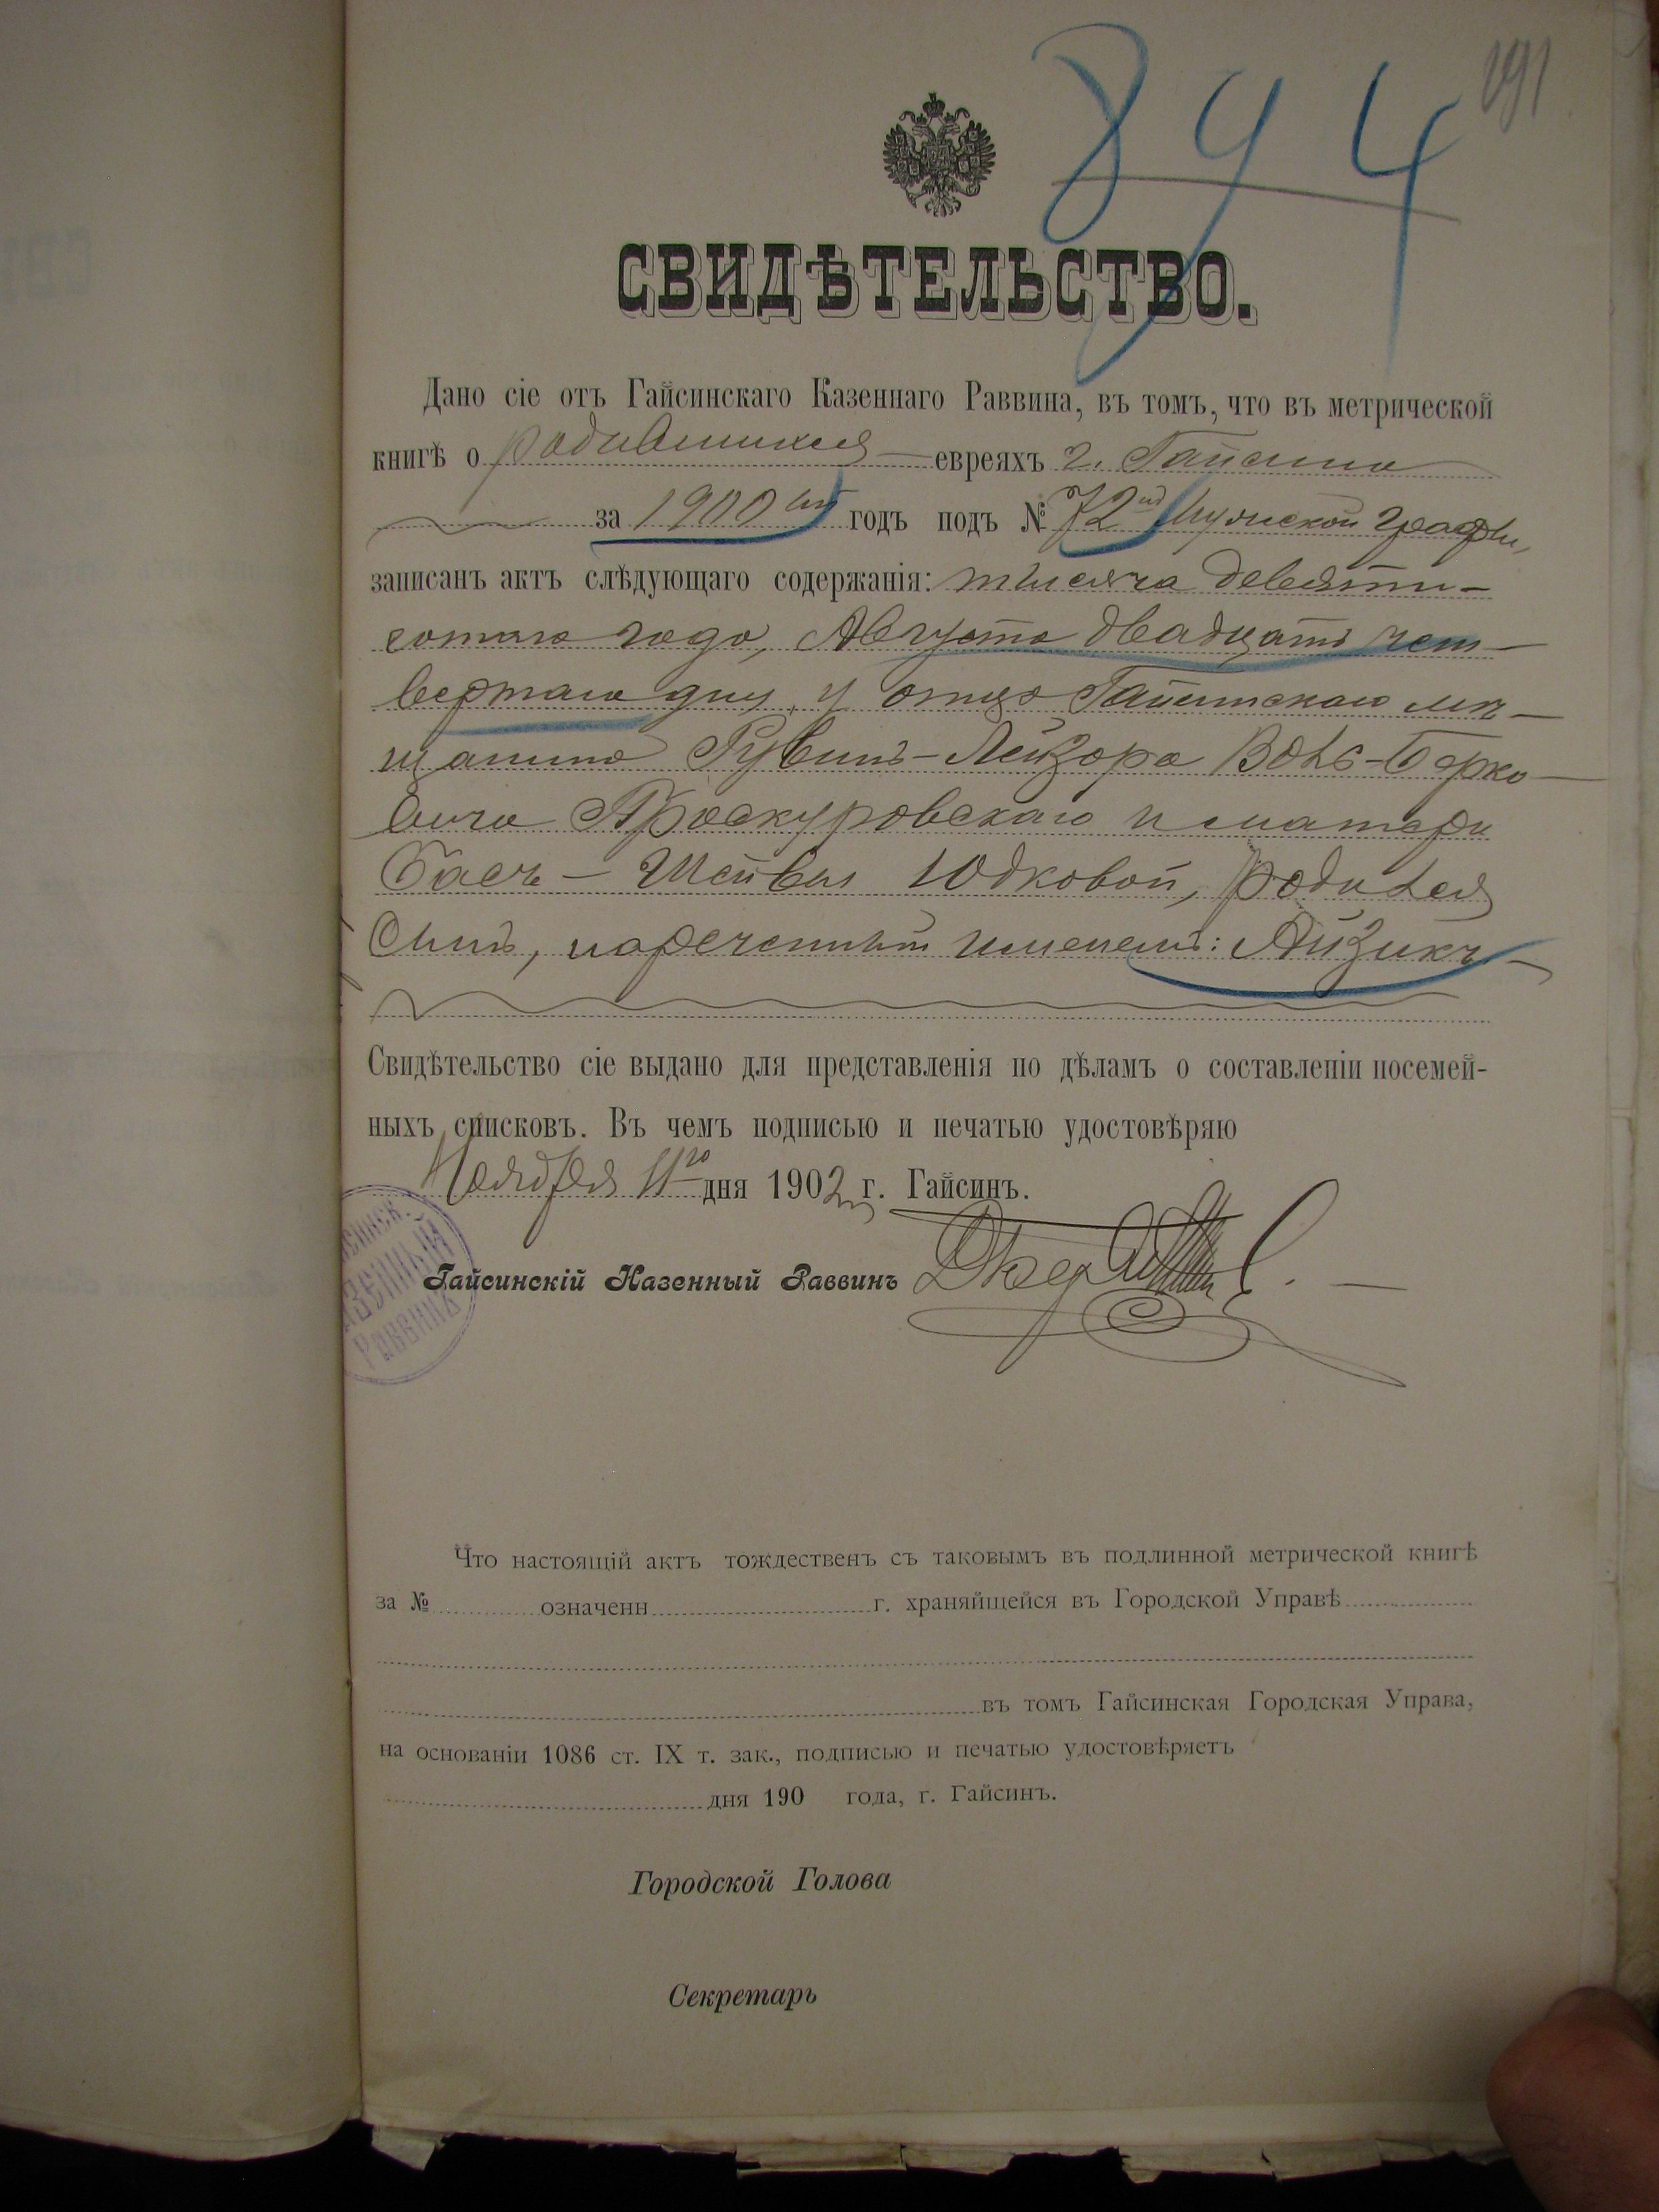 191
СВИДѢТЕЛЬСТВО.
Дано сіе отъ Гайсинскаго Казеннаго Раввина, въ томъ, что въ метрической
книгѣ о родившихся евреяхъ г. Гайсина
за 1900ый годъ подъ № 72ой мужской графы,
записанъ актъ слѣдующаго содержанія: тысяча девяти-
сотаго года, Августа двадцать чет-
вертаго дня, у отца Гайсинскаго мѣ-
щанина Рувинъ-Лейзора Воль-Берко-
вича Проскуровскаго и матери
Бася-Шейвы Юдковой, родился
Сынъ, нареченный именемъ: Айзикъ
Свидѣтельство сіе выдано для представленія по дѣламъ о составленіи посемей-
ныхъ списковъ. Въ чемъ подписью и печатью удостовѣряю
Ноября 11го дня 1902 г. Гайсинъ.
Гайсинскій Казенный Раввинъ
Что настоящій актъ тождественъ съ таковымъ въ подлинной метрической книгѣ
за № означенн г. храняйщейся въ Городской Управѣ
въ томъ Гайсинская Городская Управа,
на основаніи 1086 ст. IX т. зак., подписью и печатью удостовѣряетъ
дня 190 года, г. Гайсинъ.
Городской Голова
Секретарь